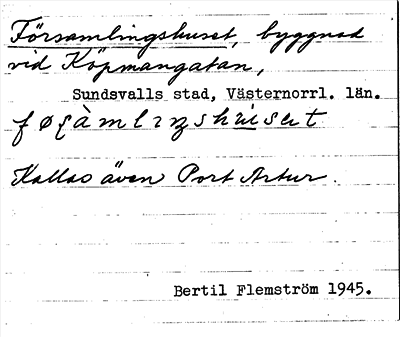 Församlingshuset, byggnad
vid Köpmangatan,
Sundsvalls stad, Västernorrl. län.
Kallas även Port Artur.
Bertil Flemström 1945.